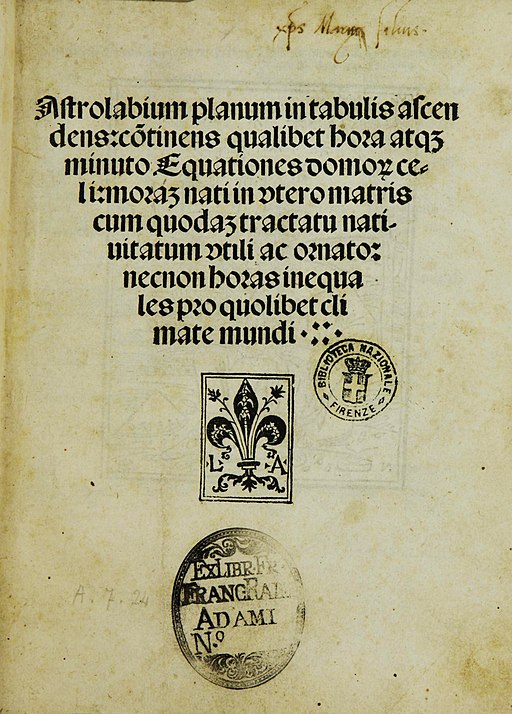 Astrolabium planum in tabulis ascen
dens: cõtinens qualibet hora atqꝫ
minuto. Equationes domoꝝ ce-
li: moráꝫ nati in vtero matris
cum quodaꝫ tractatu nati-
uitatum vtili ac ornato:
necnon horas inequa
les pro quolibet cli
mate mundi
BIBLIOTECA NAZIONALE
FIRENZE
L A
EX LIBR. FR.
FRANC RAI.
ADAMI
N.º
A. 7. 24